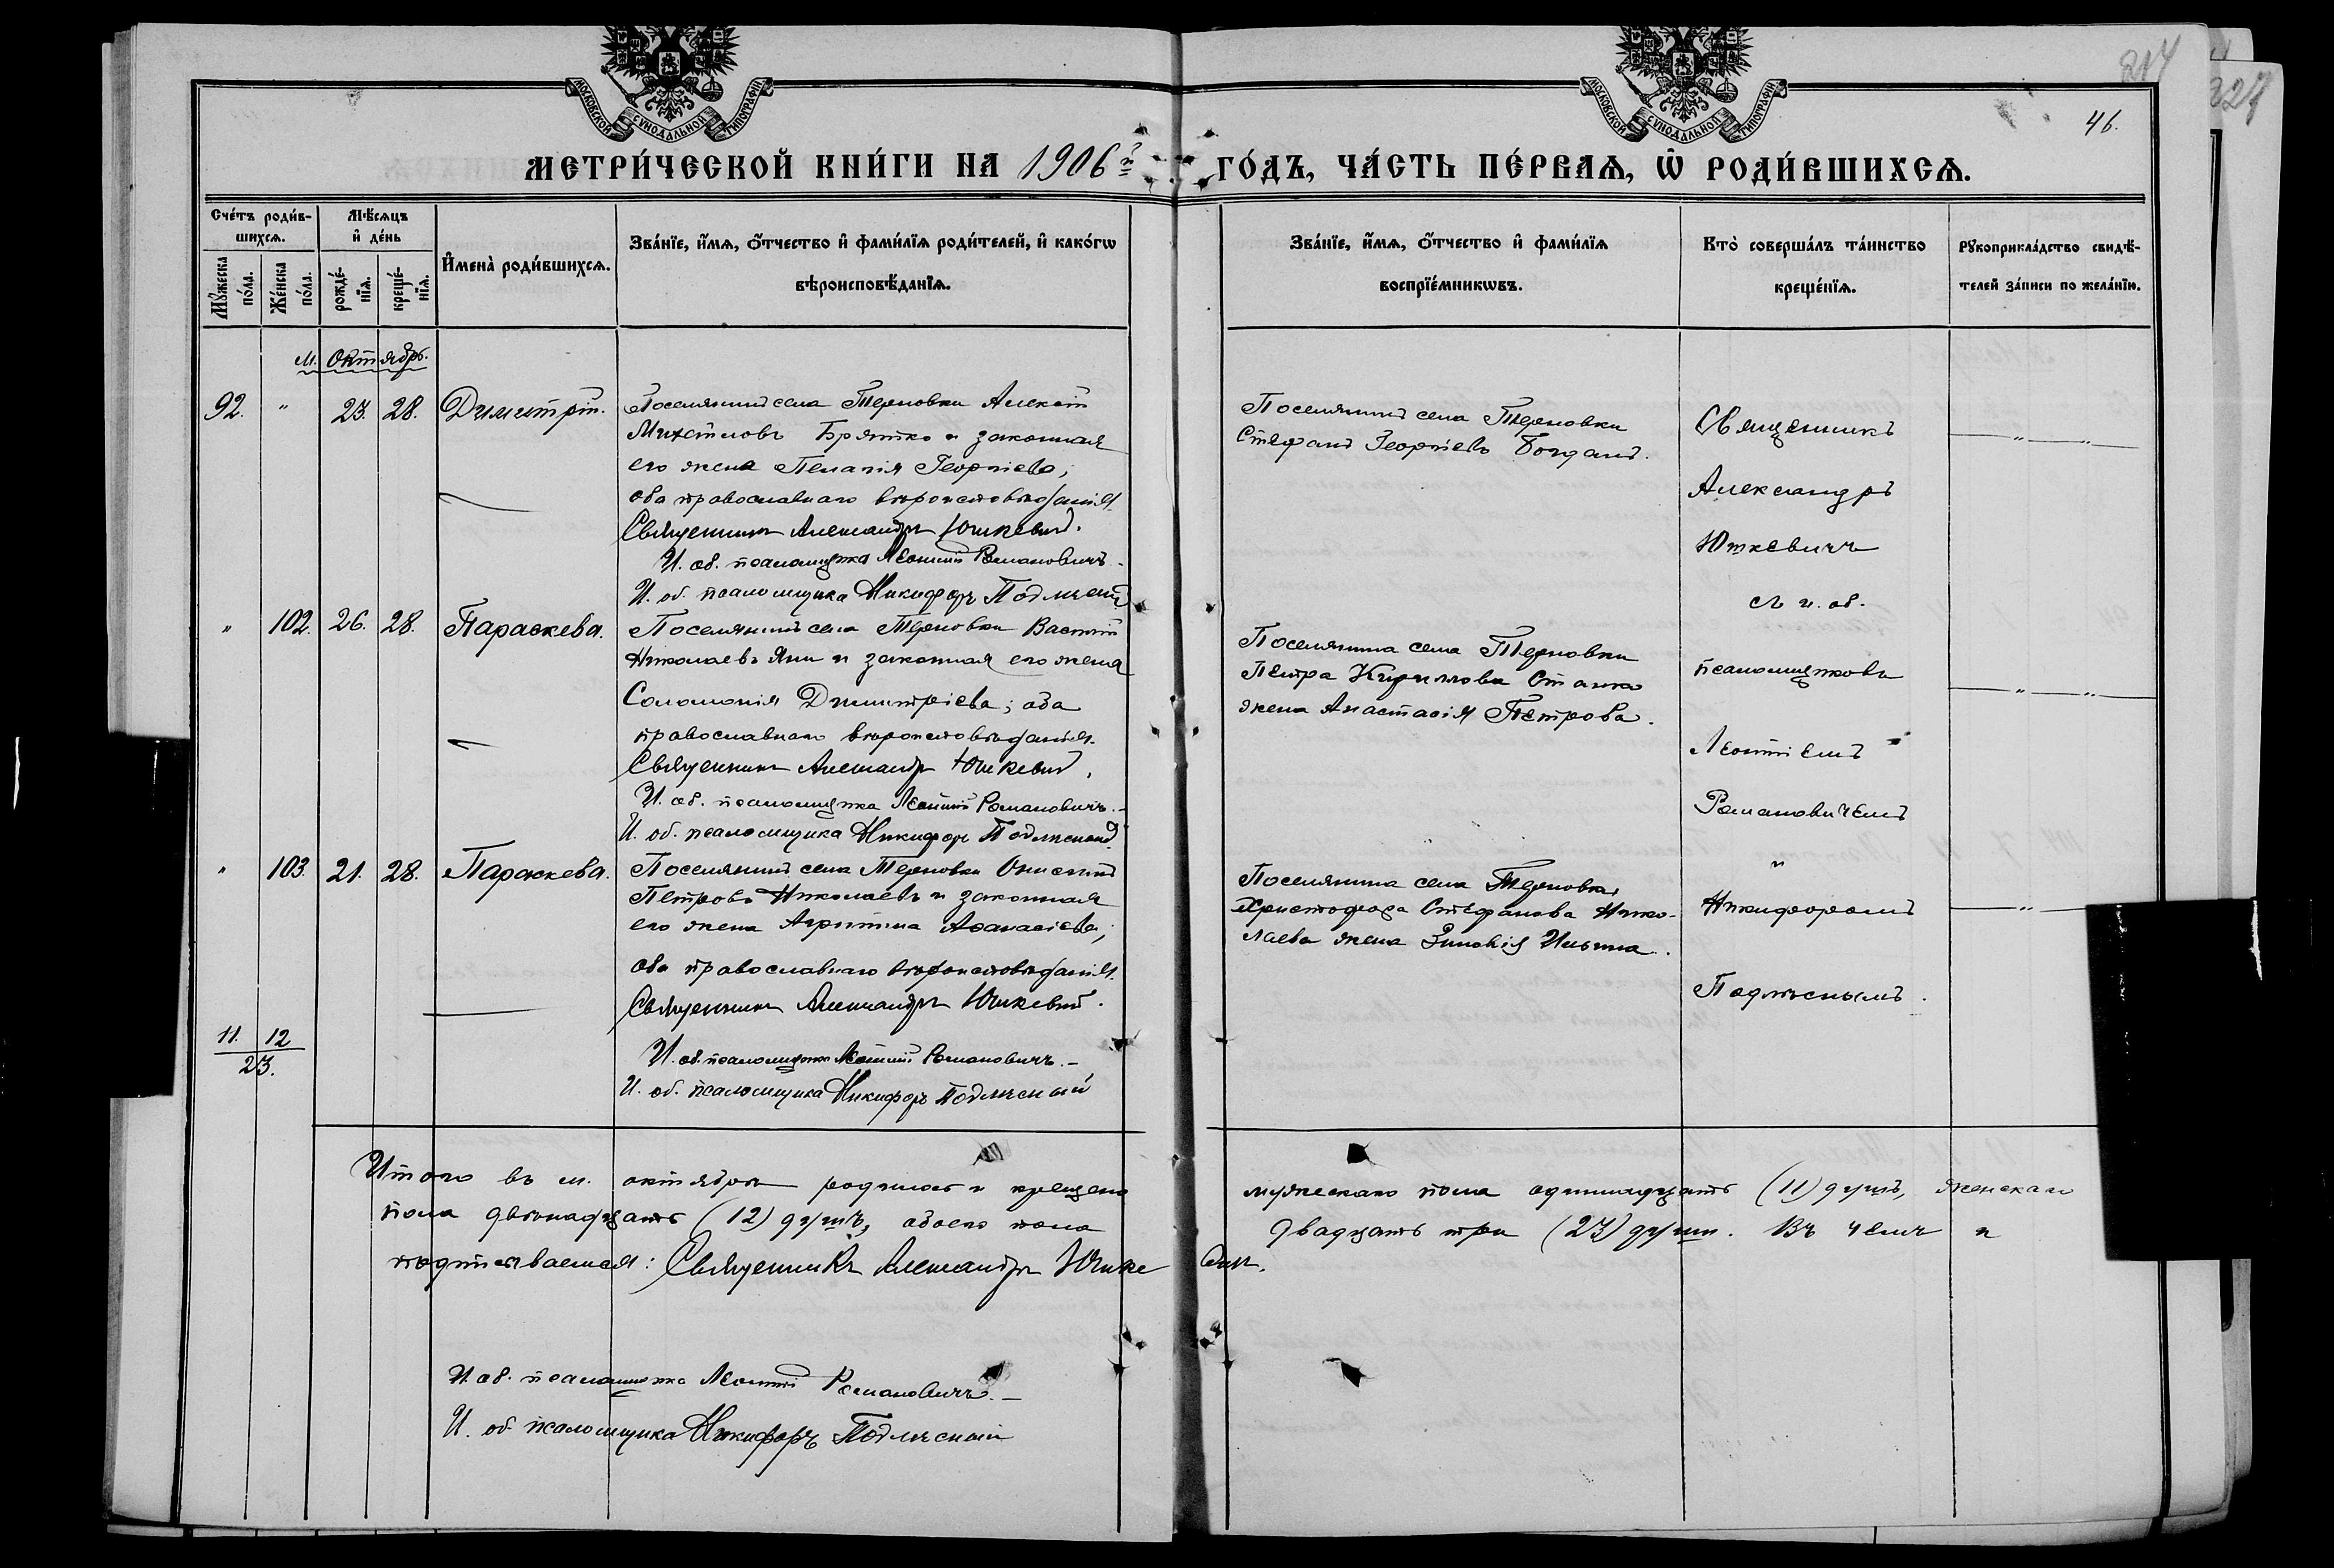 МОСКОВСКОЙ СѴНОДАЛЬНОЙ ТИПОГРАФІИ
МОСКОВСКОЙ СѴНОДАЛЬНОЙ ТИПОГРАФІИ
217
327
46.
МЕТРИ́ЧЕСКОЙ КНИ́ГИ НА 1906 г.
ГО́ДЪ, ЧА́СТЬ ПЕ́РВАѦ, Ѿ РОДИ́ВШИХСѦ.
Сче́тъ роди́в-
шихсѧ.
Мѣ́сѧцъ
и҆ де́нь
Мꙋ́жеска
по́ла.
Же́нска
по́ла.
рожде́-
нїѧ.
креще́-
нїѧ.
И҆мена̀ роди́вшихсѧ.
Зва́нїе, и҆́мѧ, ѻ҆́тчество и҆ фами́лїѧ роди́телей, и҆ како́гѡ
вѣроисповѣ́данїѧ.
Зва́нїе, и҆́мѧ, ѻ҆́тчество и҆ фами́лїѧ
воспрїе́мникѡвъ.
Кто̀ соверша́лъ та́инство
креще́нїѧ.
Рꙋкоприкла́дство свидѣ́-
телей за́писи по жела́нїю.
м. Октябрь.
92. " 23. 28. Димитрій.
Поселянинъ села Терновки Алексій
Михаиловъ Братко и законная
его жена Пелагія Георгіева;
оба православнаго вѣроисповѣданія.
Священникъ Александръ Юшкевичъ.
И. об. псаломщика Леонтій Романовичъ.
И. об. псаломщика Никифоръ Подлѣсный
Поселянинъ села Терновки
Стефанъ Георгіевъ Богданъ.
" 102. 26. 28. Параскева.
Поселянинъ села Терновки Василій
Николаевъ Яни и законная его жена
Соломонія Димитріева; оба
православнаго вѣроисповѣданія.
Священникъ Александръ Юшкевичъ.
И. об. псаломщика Леонтій Романовичъ.
И. об. псаломщика Никифоръ Подлѣсный
Поселянина села Терновки
Петра Кириллова Станко
жена Анастасія Петрова.
" 103. 21. 28. Параскева.
Поселянинъ села Терновки Онисимъ
Петровъ Николаевъ и законная
его жена Агрипина Афанасіева;
оба православнаго вѣроисповѣданія.
Священникъ Александръ Юшкевичъ.
И. об. псаломщика Леонтій Романовичъ.
И. об. псаломщика Никифоръ Подлѣсный
Поселянина села Терновки
Христофора Стефанова Нико-
лаева жена Зиновія Ильина.
Священникъ
Александръ
Юшкевичъ
съ и. об.
псаломщиковъ
Леонтіемъ
Романовичемъ
и
Никифоромъ
Подлѣснымъ.
11. 12
23.
Итого въ м. октябрѣ родилось и крещено мужескаго пола одинадцать (11) душъ, женскаго
пола двѣнадцать (12) душъ, обоего пола двадцать три (23) души. Въ чемъ и
подписываемся: Священникъ Александръ Юшкевичъ.
И. об. псаломщика Леонтій Романовичъ.
И. об. псаломщика Никифоръ Подлѣсный